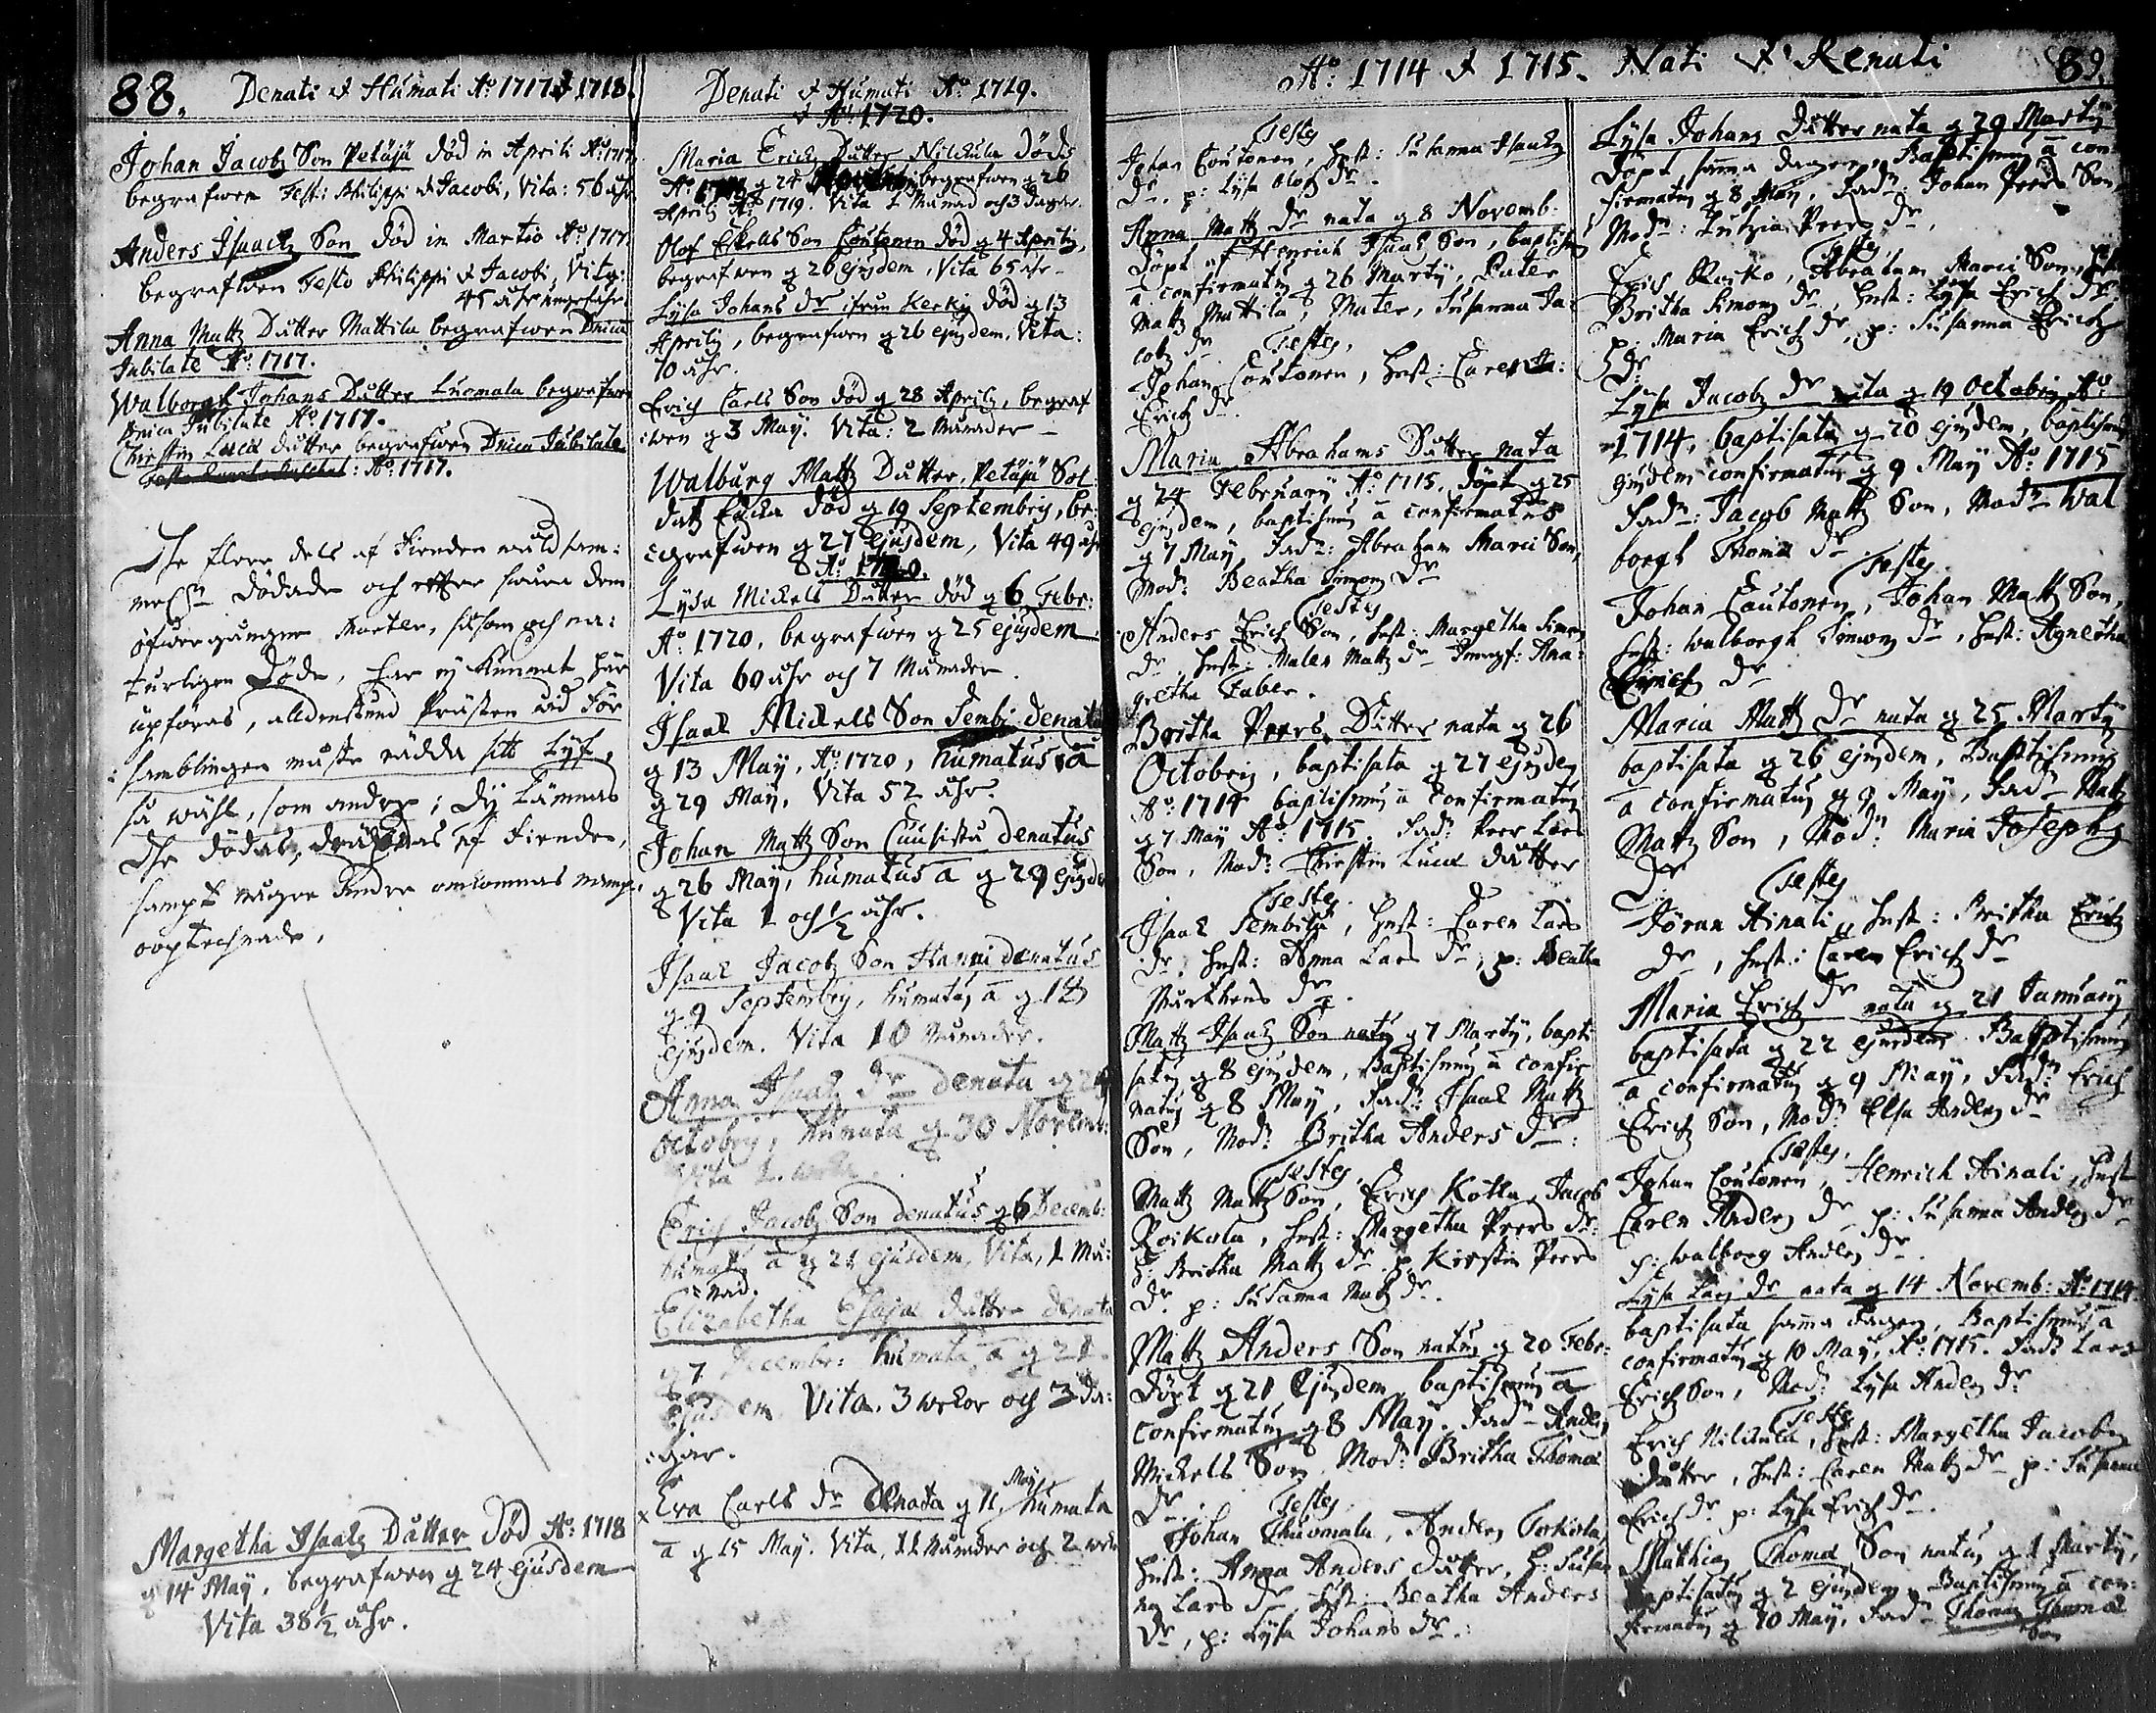 88. Denati & Humati Ao: 1717 & 1718.
Johan Jacobz Son Petäjä död in Aprili Ao: 1717
begrafwen Fest: Philippi & Jacobi, Vita: 56 åhr
Anders Isaacz Son död in Martio Ao: 1717.
begrafwen Festo Philippi & Jacobi, Vita:
45 åhr ungefähr
Anna Mattz Dutter Mattila begrafwen Dnica
Jubilate Ao: 1717.
Walborgh Johans Dutter Luomala begrafwen
Dnica Jubilate Ao: 1717.
Chirstin Lucæ dutter begrafwen Dnica Jubilate
: Ao: 1717.
The flere dels af Fienden
dödade och
öfwergångne Marter, såsom och na:
turligen Döde, har ej kunnat här
upföras, alldenstund Prästen wid För
:samblingen måste rädda sitt Lyf,
så wähl, som andre; dy lämnas
The dödas, af Fienden,
sampt någre andre omkomnas nampn
oopteknade.
Margetha Isaacz Dåtter Död Ao: 1718
g 14 May, begrafwen g 24 Ejusdem
Vita 38 1/2 åhr.
Denati & Humati Ao 1719.
& Ao 1720.
Maria Erichz Dutter Nilckula Döds
g 24 begrafwen g 26
Aprilis Ao 1719. Vita 1 Månad och 3 dagar.
Olof Eskells Son Coutonen död g 4 Aprilis,
begrafwen g 26 ejusdem, Vita 65 åhr
Lysa Johans dr ifrån Kerkis död g 13
Aprilis, begrafwen g 26 ejusdem. Vita:
70 åhr.
Erich Carls Son död g 28 Aprilis, begraf
:wen g 3 May. Vita: 2 Månader
Walburg Mattz Dutter, Petäjä Sol:
datz Encka död g 19 Septembris, be:
:grafwen g 27 Ejusdem, Vita 49 åhr
Ao: 1720.
Lysa Mickels Dutter död g 6 Febr:
Ao: 1720, begrafwen g 25 ejusdem
Vita 60 åhr och 7 Månader.
Isaac Mickels Son Sembi denatus
g 13 May, Ao: 1720, humatus a
g 29 May, Vita 52 åhr.
Johan Mattz Son Cuusista denatus
g 26 May, humatus a g 29 Ejusdem
Vita 1 och 1/2 åhr.
Isaac Jacobz Son Hanni denatus
g 9 Septembris, humatus a g 18
ejusdem. Vita 10 Månader.
Anna Isaacz dr denata g 24
Octobris, humata g 30 Novemb:
Vita 1.
Erich Jacobz Son denatus g 6 Decemb:
humatus a g 21 ejusdem, Vita, 1 Må:
:nad.
Elizabetha Esaiæ dutter denata
g 7 Decembr: humata a g 21
Ejusdem Vita. 3 wekor och 3 Da:
:gar.
x Eva Carls dr denata g 11. May humata
a g 15 May. Vita, 11 Månader och 2 wek
Ao: 1714 & 1715. Nati & Renati 89.
Testes
Johan Coutonen, Hust: Susanna Isaacz
dr. p: Lysa Olofz dr.
Anna Mattz dr nata g 8 Novemb:
döpt af Henrich Isaacz Son, baptismus
a confirmatus g 26 Martij, Pater
Mattz Mattila, Mater, Susanna Ja:
cobz dr Testes.
Johan Coutonen, Hust: Caren
Erichz dr.
Maria Abrahams Dutter nata
g 24 Februarij Ao 1715. döpt g 25
ejusdem, baptismus a confirmatus
g 7 May, Fadr: Abraham Marci Son,
Modr: Beatha Simons dr
Testes
Anders Erichz Son, Hust: Margetha Simons
dr. Hust: Malen Mattz dr Jungf: Ana
gretha Faber.
Britha Peers Dutter nata g 26
Octobris, baptisata g 27 ejusdem
Ao: 1714 baptismus a Confirmatus
g 7 May Ao: 1715. Fadr: Peer Lars
Son, Modr: Chirstin Lucæ dutter
Testes.
Isaac Sembilä, Hust: Caren Lars
dr. Hust: Anna Lars dr, p: Beatha
dr.
Mattz Isaacz Son natus g 7 Martij, bapti
satus g 8 ejusdem, Baptismus a confir
matus g 8 May, Fadr: Isaac Mattz
Son, Modr: Britha Anders dr:
Testes.
Mattz Mattz Son, Erich Kotka, Jacob
Roikola, Hust: Margetha Peers dr:
p: Britha Mattz dr. p: Kirstin Peers
dr. p: Susanna Mattz dr.
Mattz Anders Son natus g 20 Febr:
döpt g 21 Ejusdem baptismus a
confirmatus g 8 May. Fadr Anders
Mickels Son, Modr: Britha Thomæ
dr. Testes.
Johan Thuomala, Anders Torkola,
Hust: Anna Anders dutter, H: Susan
na Lars dr, Hust: Beatha Anders
dr, p: Lysa Johans dr.:
Lysa Johans Dutter nata g 29 Martij
döpt samma dagen, Baptismus a con
firmatus g 8 May, Fadr: Johan Peers Son,
Modr: Peers dr.
Testes,
Erich Raiko, Abraham Marci Son, Hust
Britha Simons dr, Hust: Lysa Erichz dr:
p: Maria Erichz dr, p: Susanna Erichz
dr.
Lysa Jacobz dr nata g 19 Octobris Ao:
1714, baptisata g 20 ejusdem, baptismus
ejusdem confirmatus g 9 May Ao: 1715
Fadr: Jacob Mattz Son, Modr Wal
borgh Thomæ dr.
Testes.
Johan Coutonen, Johan Mattz Son,
Hust: Walborgh Simons dr, Hust: Agnetha
dr
Maria Mattz dr nata g 25 Martij
baptisata g 26 ejusdem, Baptismus
a confirmatus g 9 May, Fadr Mattz
Mattz Son, Modr: Maria Josephz
dr. Testes
Jöran Ainali, Hust: Britha Erichz
dr, Hust: Caren Erichz dr
Maria Erichz dr nata g 21 Januarij
baptisata g 22 ejusdem Baptismus
a confirmatus g 9 May, Fadr: Erich
Erichz Son, Modr: Elsa Anders dr
Testes.
Johan Coutonen, Henrich Ainali, Hust
Caren Anders dr p: Susanna Anders dr
p: Walborg Anders dr.
Lysa Lars dr nata g 14 Novemb: Ao: 1714
baptisata samma dagen, Baptismus a
confirmatus g 10 May, Ao: 1715. Fadr Lars
Erichz Son, Modr: Lysa Anders dr:
Testes
Erich Nilckula, Hust: Margetha Jacobz
dutter, Hust: Caren Mattz dr p: Susanna
Erichz dr p: Lysa Erichz dr.
Mathias Thomæ Son natus g 1 Martij,
baptisatus g 2 ejusdem, Baptismus a con:
firmatus g 10 May, Fadr Thomas Thomæ
Son